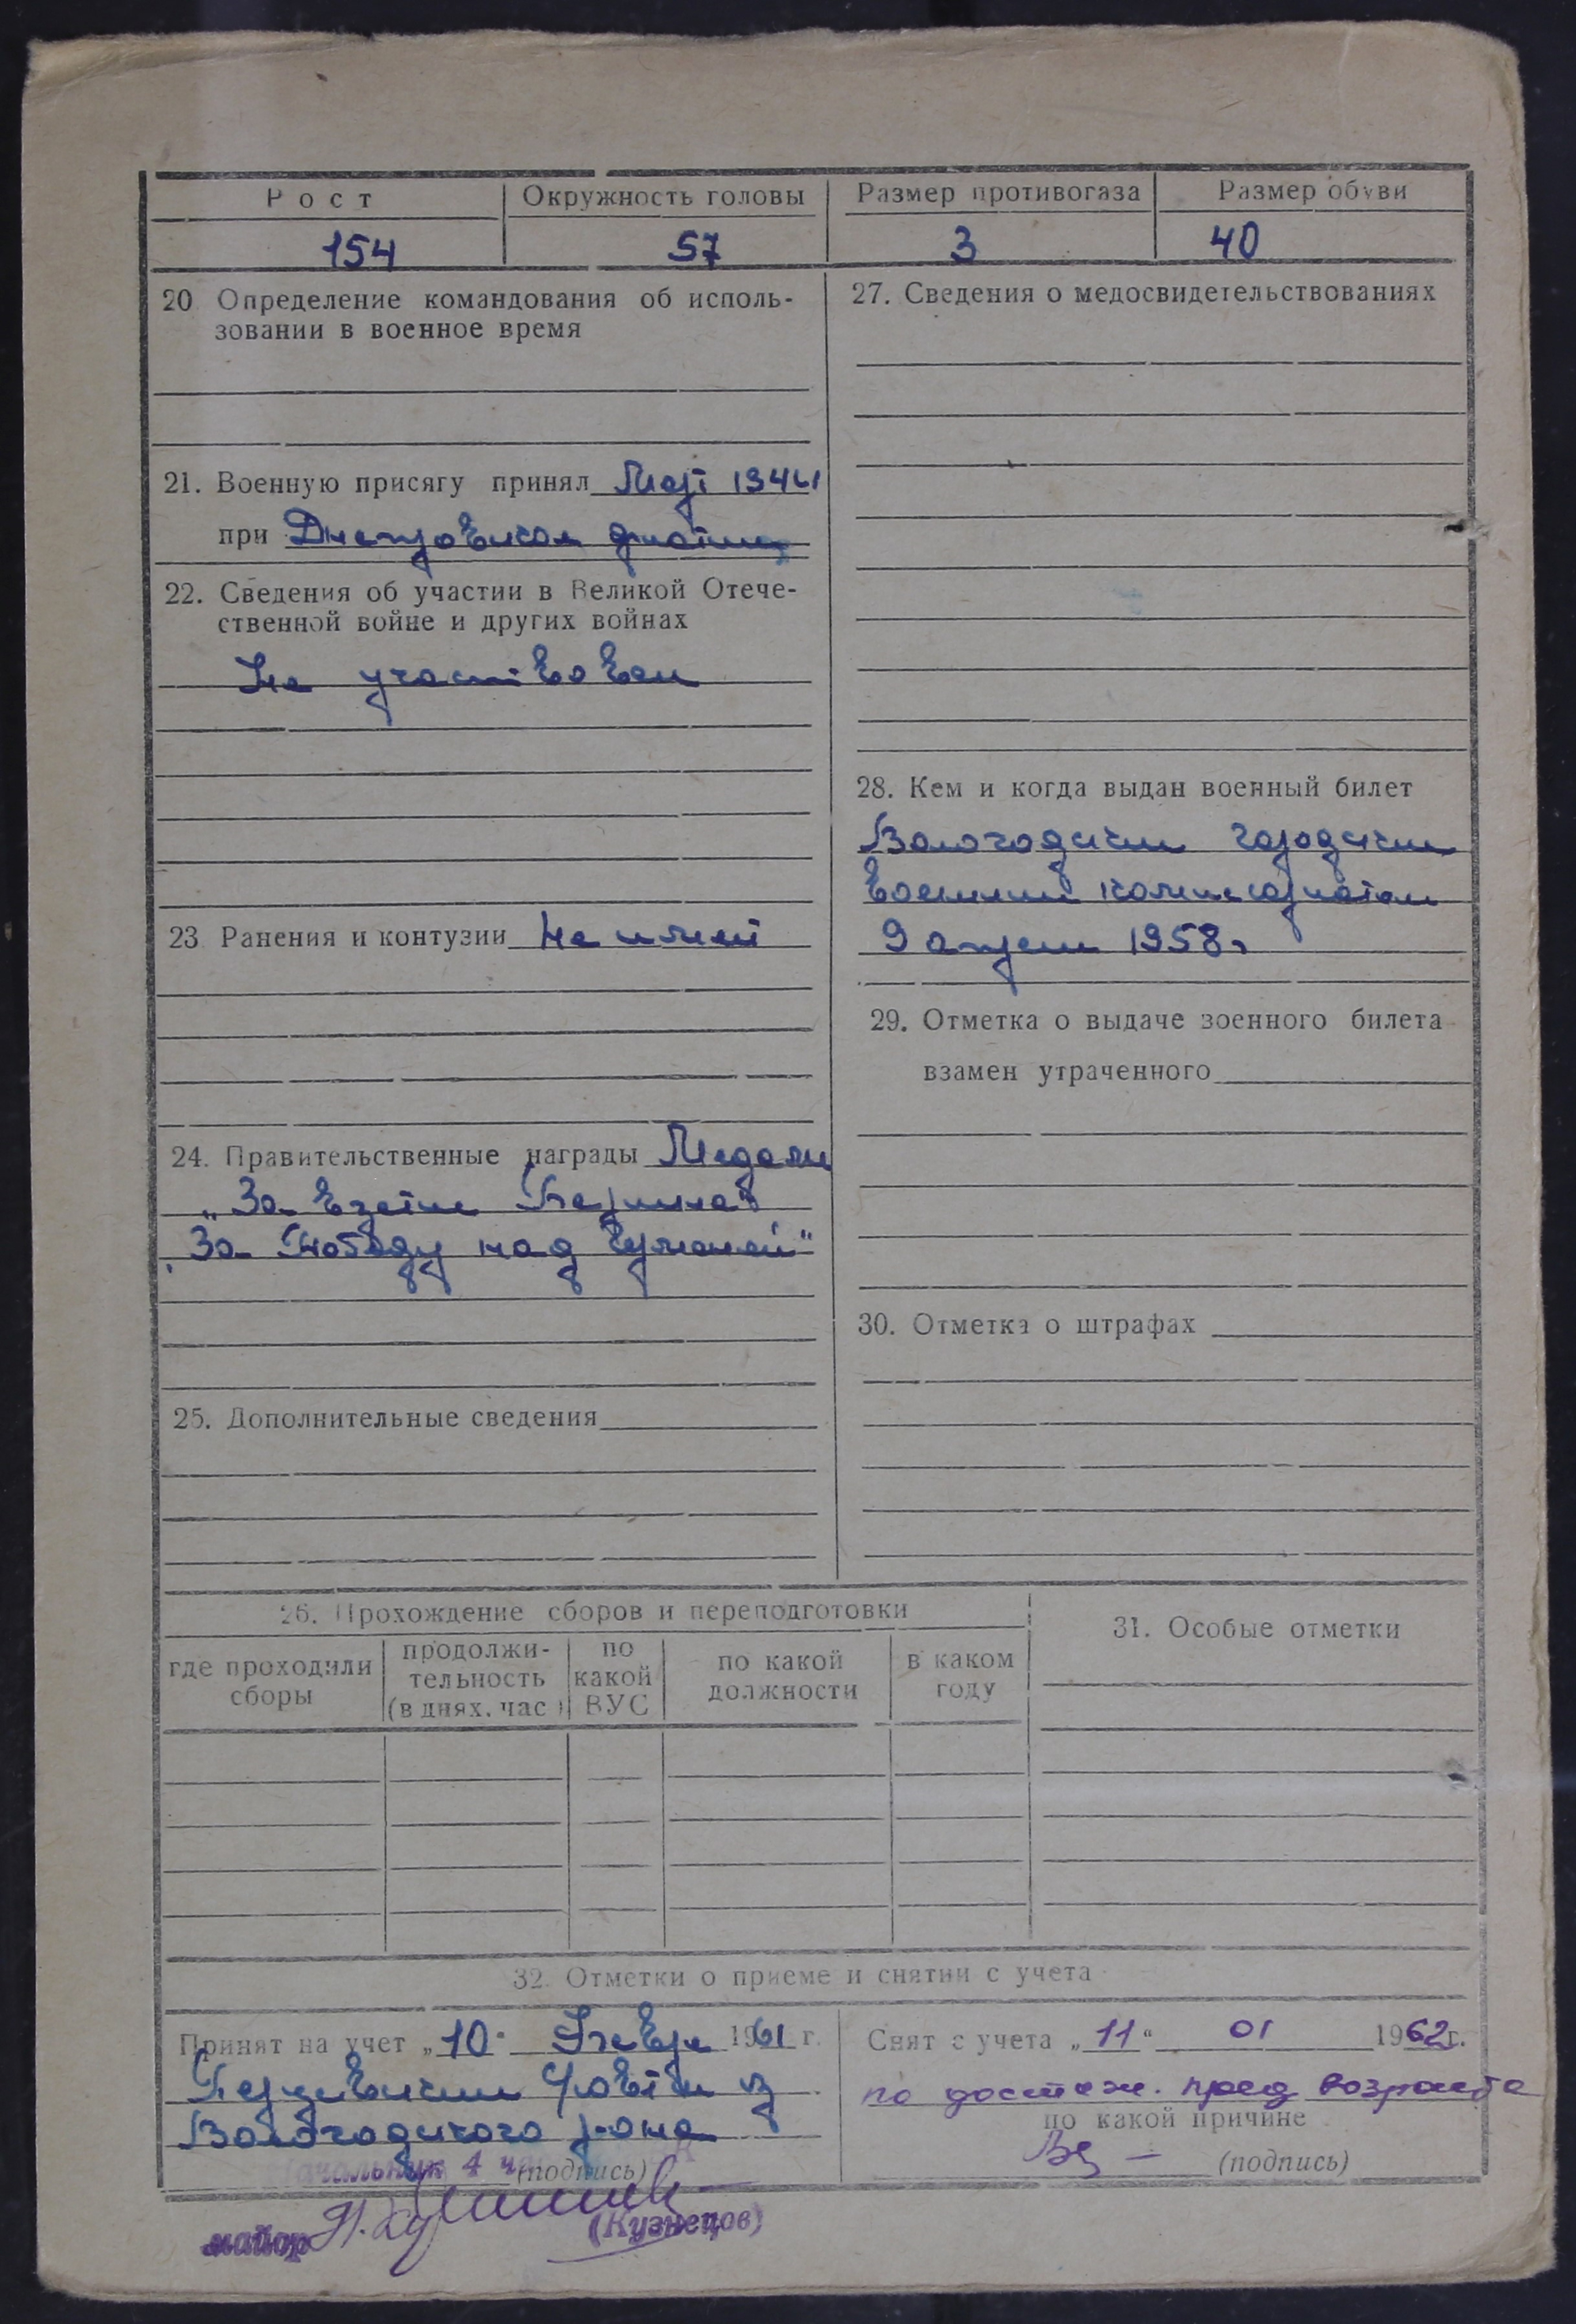 Рост Окружность головы Размер противогаза Размер обуви
154 57 3 40
20 Определение командования об исполь-
зовании в военное время
21. Военную присягу принял Март 1944
при Днепровской флотилии
22. Сведения об участии в Великой Отече-
ственной войне и других войнах
Не участвовал
23 Ранения и контузии не имеет
24. Правительственные награды Медали
„За взятие Берлина"
„За Победу над Германией"
25. Дополнительные сведения
27. Сведения о медосвидетельствованиях
28. Кем и когда выдан военный билет
Вологодским городским
военным комиссариатом
9 апреля 1958г
29. Отметка о выдаче военного билета
взамен утраченного
30. Отметка о штрафах
26. Прохождение сборов и переподготовки
где проходили
сборы
продолжи-
тельность
(в днях, час)
по
какой
ВУС
по какой
должности
в каком
году
31. Особые отметки
32. Отметки о приеме и снятии с учета
Принят на учет „10" 1961 г.
из
Вологодского р-она
Начальник 4 (подпись)
майор (Кузнецов)
Снят с учета „11" 01 1962г.
по достиж. пред возраста
по какой причине
(подпись)